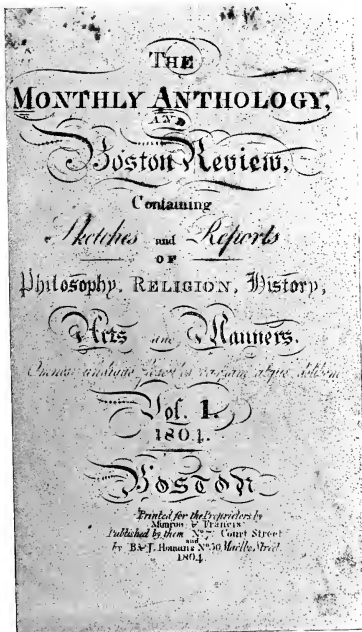 THE
MONTHLY ANTHOLOGY,
AND
Boston Review,
Containing
Sketches and Reports
OF
Philosophy, RELIGION, History,
Arts and Manners.
Omnes undique
Vol. 1.
1804.
BOSTON
Printed for the Proprietors by
Munroe & Francis
Published by them No. 7 Court Street
and
by B. & J. Homans No. 50, Marlbo. Street
1804.